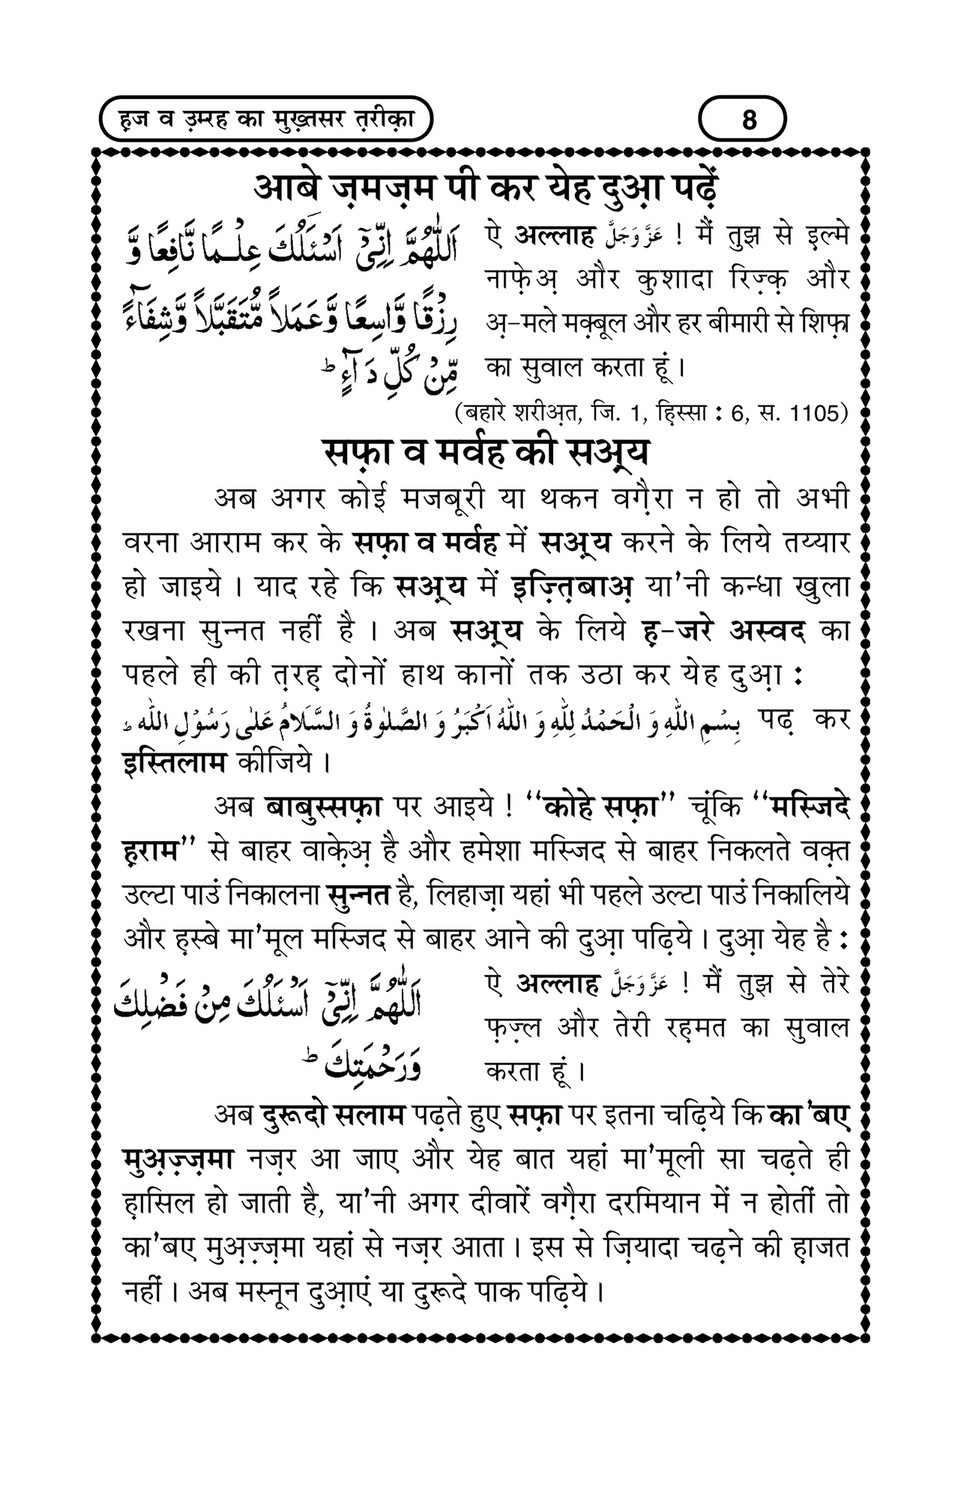 ह़ज व उ़म्रह का मुख़्तसर त़रीक़ा
8
आबे ज़मज़म पी कर येह दुआ़ पढ़ें
اَللّٰهُمَّ اِنِّیْۤ اَسْـَٔلُكَ عِلْـمًا نَّافِعًا وَّ
رِزْقًا وَّاسِعًا وَّعَمَلًا مُّتَقَبَّلًا وَّشِفَآءً
مِّنْ كُلِّ دَآءٍ ؕ
ऐ अल्लाह عَزَّوَجَلَّ ! मैं तुझ से इ़ल्मे
नाफ़ेअ़ और कुशादा रिज़्क़ और
अ़-मले मक़्बूल और हर बीमारी से शिफ़ा
का सुवाल करता हूं ।
(बहारे शरीअ़त, जि. 1, ह़िस्सा : 6, स. 1105)
सफ़ा व मर्वह की सअ़्य
अब अगर कोई मजबूरी या थकन वग़ैरा न हो तो अभी
वरना आराम कर के सफ़ा व मर्वह में सअ़्य करने के लिये तय्यार
हो जाइये । याद रहे कि सअ़्य में इज़्त़िबाअ़ या'नी कन्धा खुला
रखना सुन्नत नहीं है । अब सअ़्य के लिये ह़-जरे अस्वद का
पहले ही की त़रह़ दोनों हाथ कानों तक उठा कर येह दुआ़ :
بِسْمِ اللّٰهِ وَ الْحَمْدُ لِلّٰهِ وَ اللّٰهُ اَكْبَرُ وَ الصَّلٰوةُ وَ السَّلَامُ عَلٰی رَسُوْلِ اللّٰه ؕ पढ़ कर
इस्तिलाम कीजिये ।
अब बाबुस्सफ़ा पर आइये ! ‘‘कोहे सफ़ा’’ चूंकि ‘‘मस्जिदे
ह़राम’’ से बाहर वाक़ेअ़ है और हमेशा मस्जिद से बाहर निकलते वक़्त
उल्टा पाउं निकालना सुन्नत है, लिहाज़ा यहां भी पहले उल्टा पाउं निकालिये
और ह़स्बे मा'मूल मस्जिद से बाहर आने की दुआ़ पढ़िये । दुआ़ येह है :
اَللّٰهُمَّ اِنِّیْۤ اَسْـَٔلُكَ مِنْ فَضْلِكَ
وَرَحْمَتِكَ ؕ
ऐ अल्लाह عَزَّوَجَلَّ ! मैं तुझ से तेरे
फ़ज़्ल और तेरी रह़मत का सुवाल
करता हूं ।
अब दुरूदो सलाम पढ़ते हुए सफ़ा पर इतना चढ़िये कि का'बए
मुअ़ज़्ज़मा नज़र आ जाए और येह बात यहां मा'मूली सा चढ़ते ही
ह़ासिल हो जाती है, या'नी अगर दीवारें वग़ैरा दरमियान में न होतीं तो
का'बए मुअ़ज़्ज़मा यहां से नज़र आता । इस से ज़ियादा चढ़ने की ह़ाजत
नहीं । अब मस्नून दुआ़एं या दुरूदे पाक पढ़िये ।